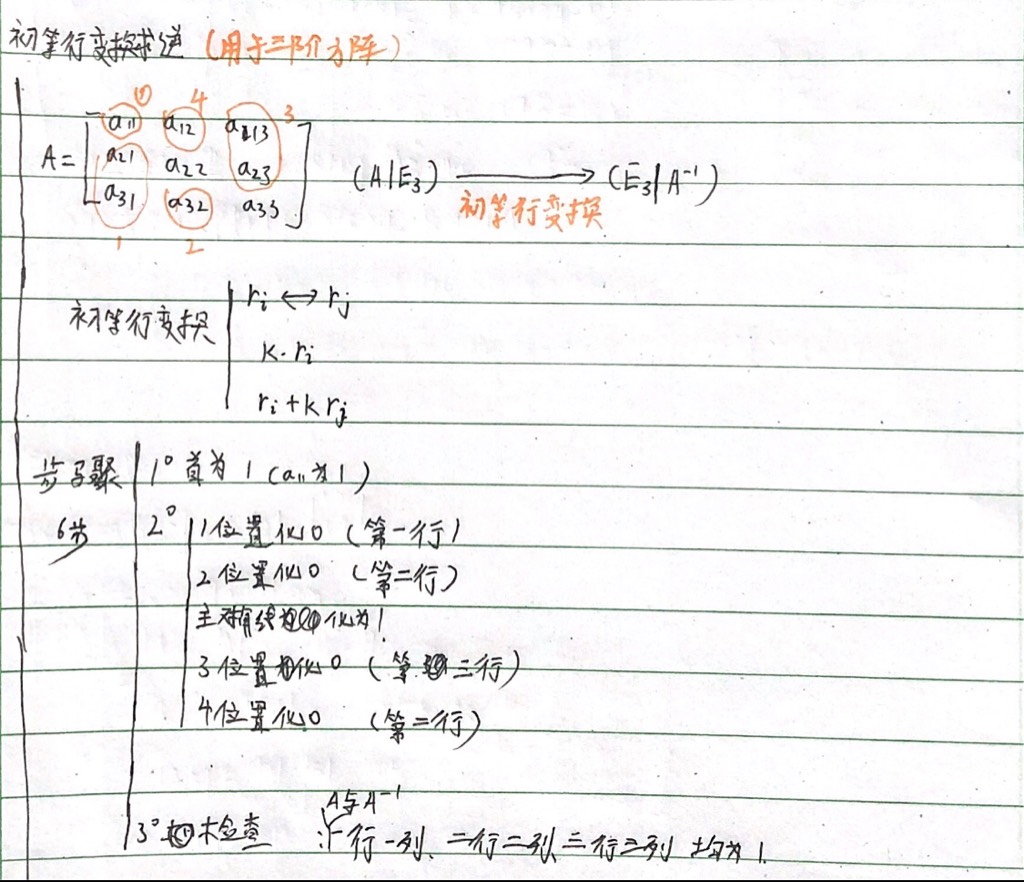 初等行变换求逆（用于三阶方阵）
① 4 3
A = [ a11 a12 a13
a21 a22 a23
a31 a32 a33 ]
1 2
(A|E3) ⟶ (E3|A⁻¹)
初等行变换
初等行变换
ri ↔ rj
k·ri
ri + k rj
步骤 6步
1° 首为1（a11为1）
2° 1位置化0（第一行）
2位置化0（第二行）
主对角线化为1
3位置化0（第三行）
4位置化0（第二行）
3° 检查：A与A⁻¹一行一列、二行二列、三行三列 均为1.